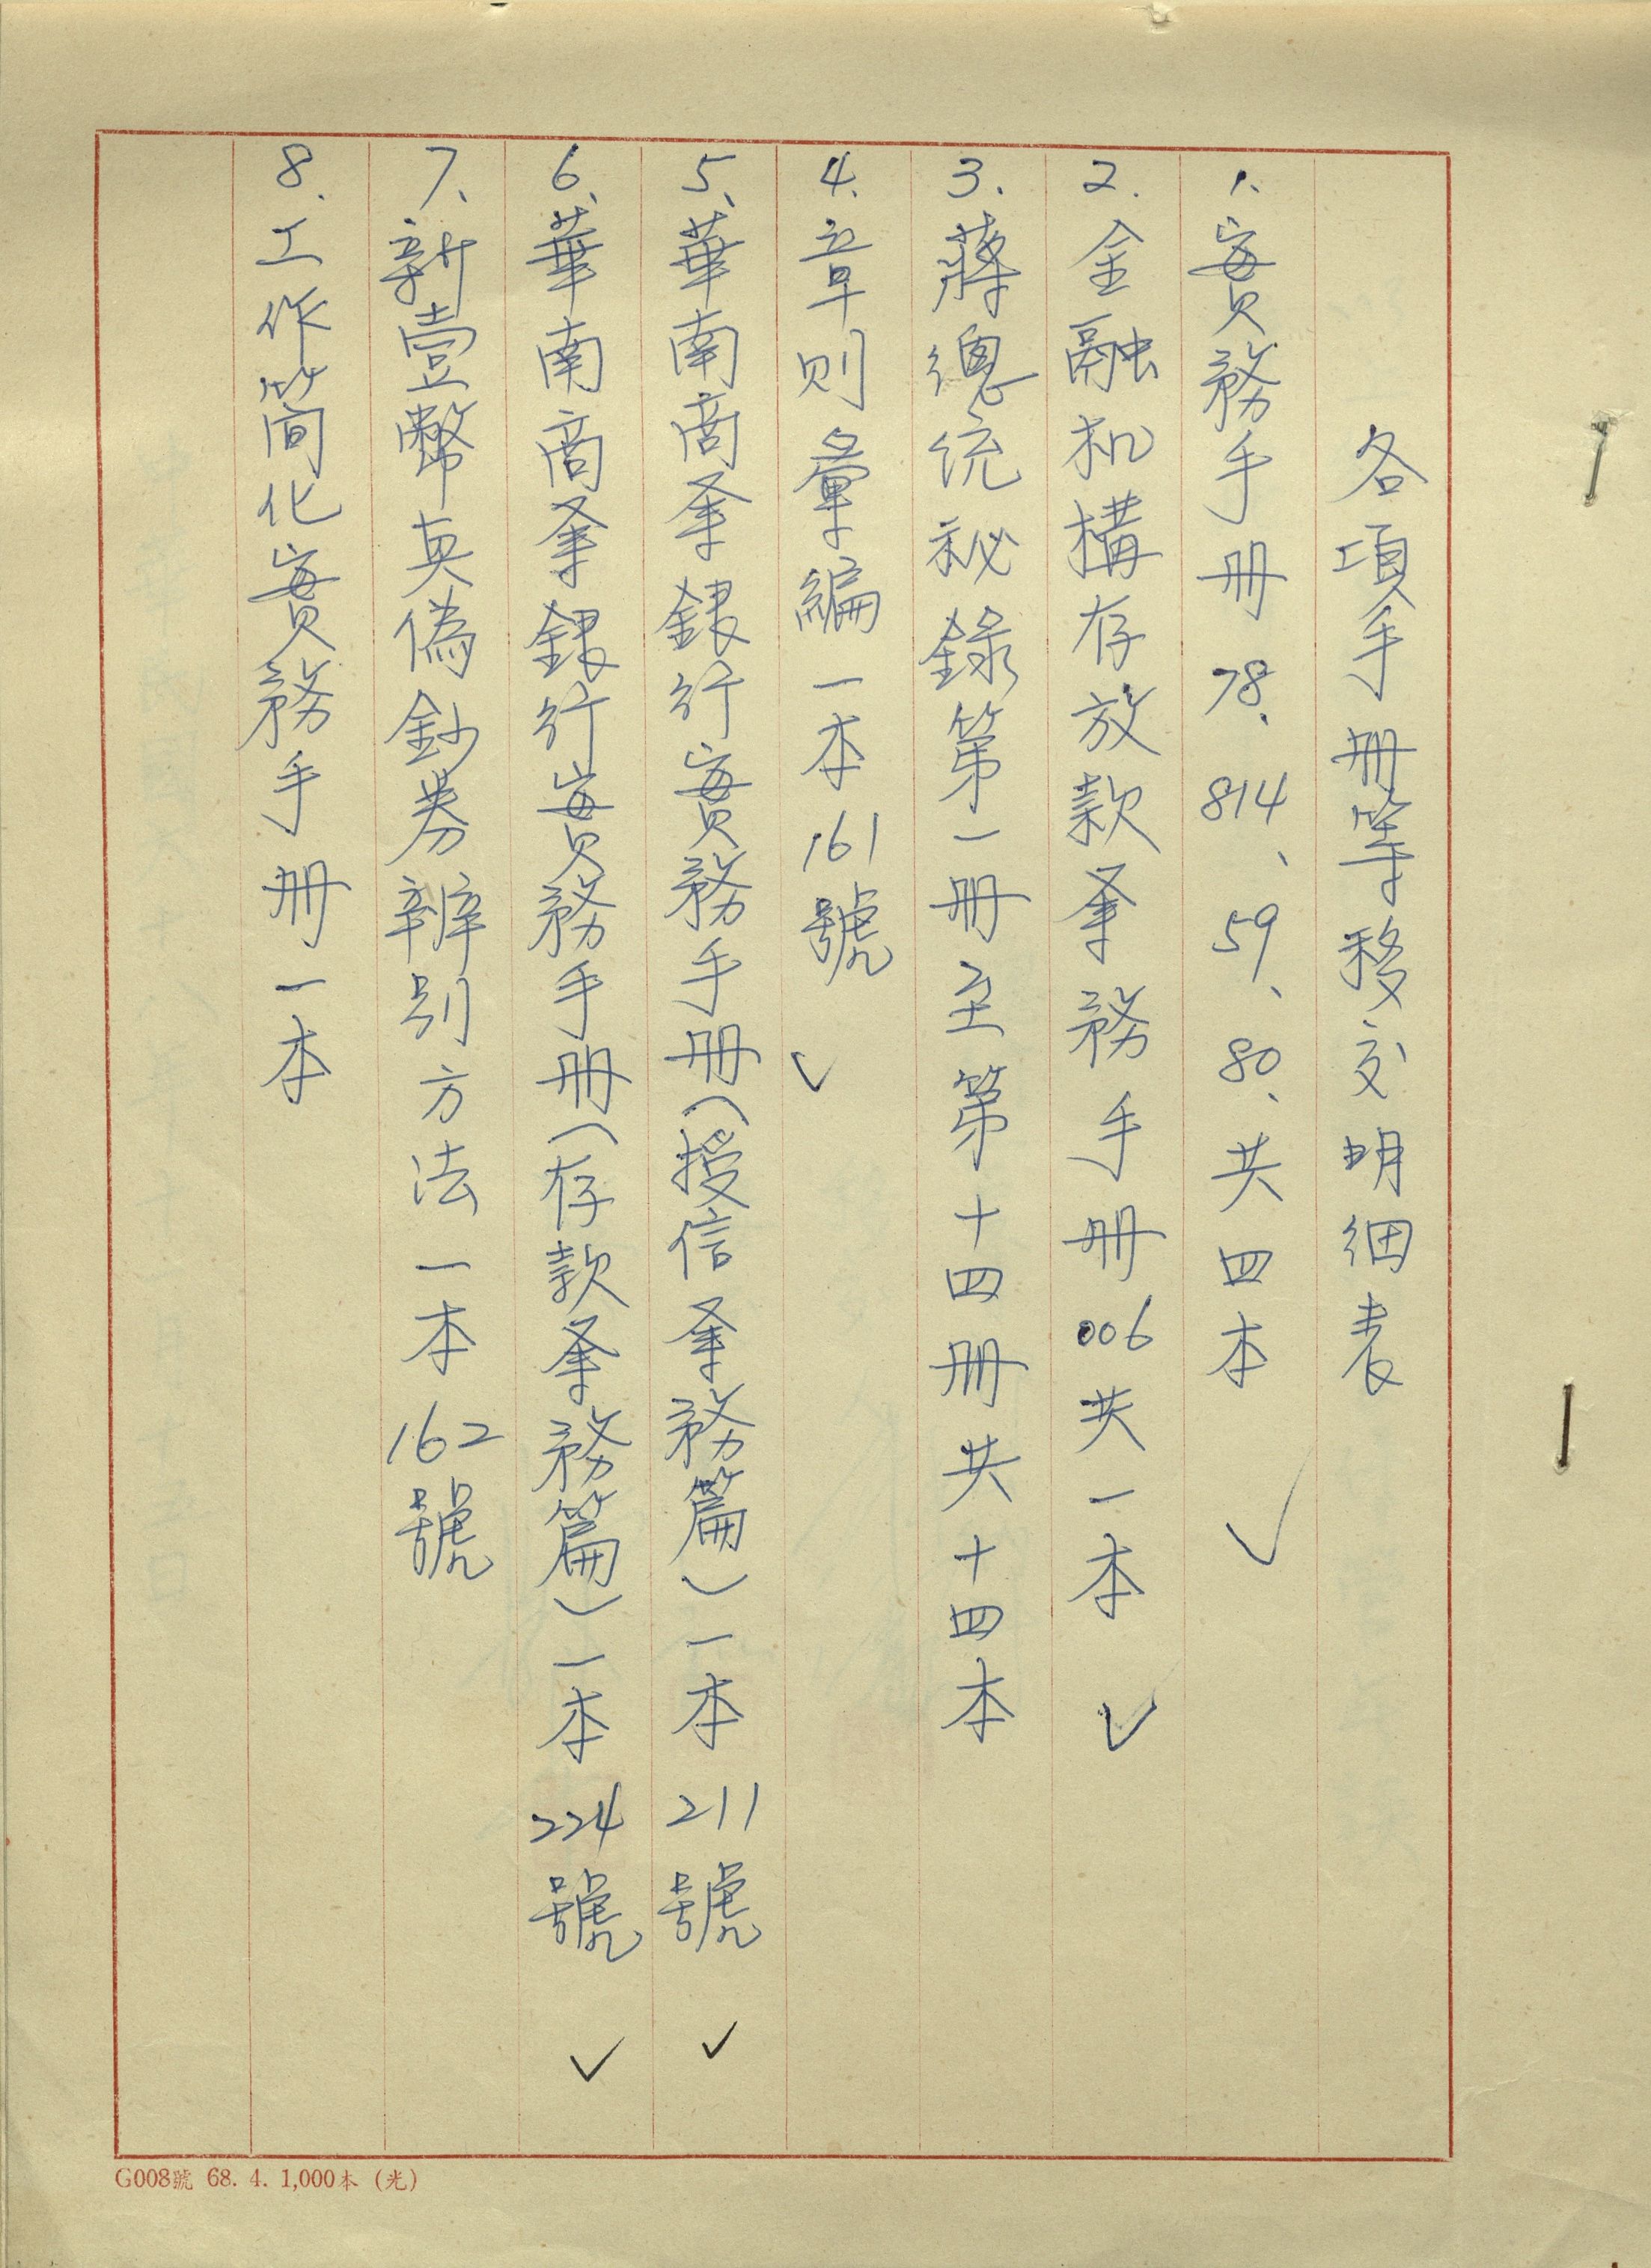 各項手冊等移交明細表
1、實務手冊 78、814、59、80、共四本 ✓
2.金融机構存放款業務手冊006共一本 ✓
3.蔣總统秘錄第一冊至第十四冊共十四本
4.章則彙編一本161號 ✓
5、華南商業銀行實務手冊(授信業務篇)一本211號 ✓
6、華南商業銀行實務手冊(存款業務篇)一本224號 ✓
7、新壹幣真偽鈔券辨别方法一本162號
8.工作简化實務手冊一本
G008號 68. 4. 1,000本 (光)